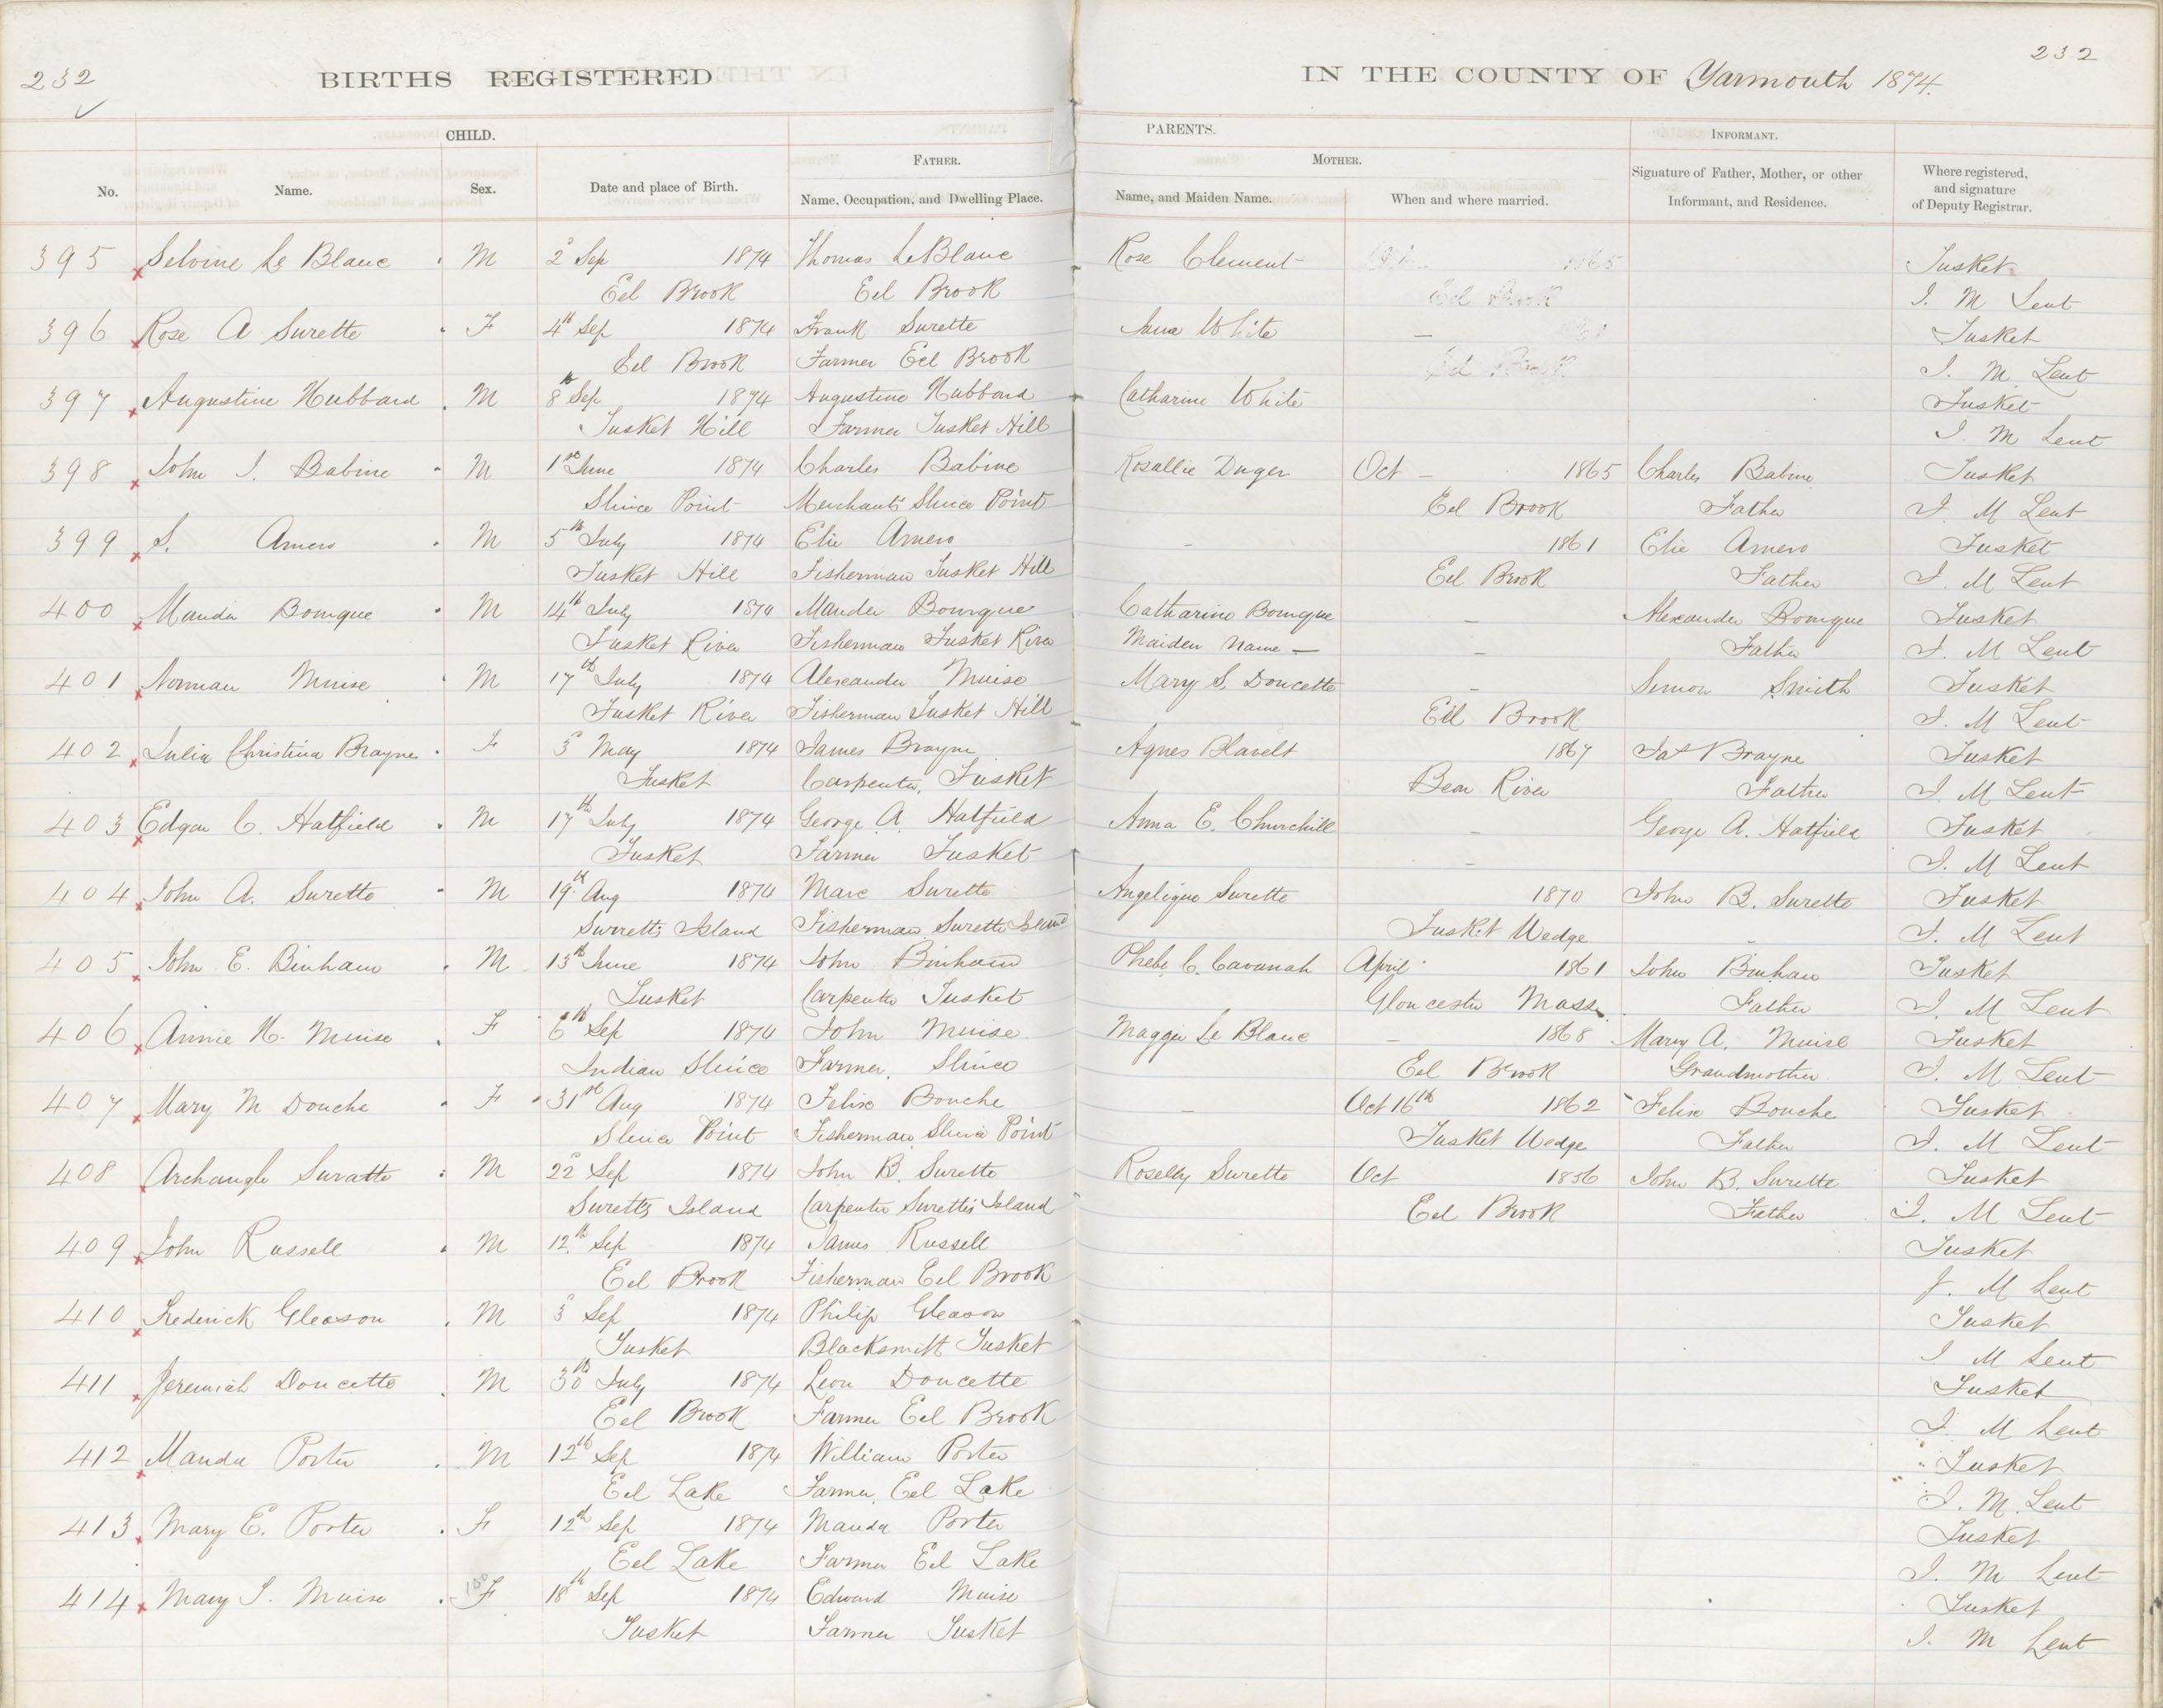 232
232
BIRTHS REGISTERED
IN THE COUNTY OF Yarmouth 1874.
CHILD.
PARENTS.
INFORMANT.
No.
Name.
Sex.
Date and place of Birth.
FATHER.
Name, Occupation, and Dwelling Place.
MOTHER.
Name, and Maiden Name.
When and where married.
Signature of Father, Mother, or other
Informant, and Residence.
Where registered,
and signature
of Deputy Registrar.
395 Selvine Le Blanc M 2d Sep 1874 Thomas LeBlanc Rose Clement 1865 Tusket
Eel Brook Eel Brook Eel Brook J. M Lent
396 Rose A Surette F 4th Sep 1874 Frank Surette Anna White — Tusket
Eel Brook Farmer Eel Brook Eel Brook J. M. Lent
397 Augustine Hubbard M 8th Sep 1874 Augustine Hubbard Catharine White Tusket
Tusket Hill Farmer Tusket Hill J. M Lent
398 John J. Babine M 1st June 1874 Charles Babine Rosallie Duger Oct — 1865 Charles Babine Tusket
Sluice Point Merchant Sluice Point Eel Brook Father J. M Lent
399 S. Amero M 5th July 1874 Elie Amero — 1861 Elie Amero Tusket
Tusket Hill Fisherman Tusket Hill Eel Brook Father J. M Lent
400 Mander Bourque M 14th July 1874 Mander Bourque Catharine Bourque — Alexander Bourque Tusket
Tusket River Fisherman Tusket River Maiden name — — Father J. M Lent
401 Norman Muise M 17th July 1874 Alexander Muise Mary S. Doucette — Simon Smith Tusket
Tusket River Fisherman Tusket Hill Eel Brook J. M Lent
402 Julia Christina Brayne F 3d May 1874 James Brayne Agnes Blavelt 1867 Jas Brayne Tusket
Tusket Carpenter, Tusket Bear River Father J. M Lent
403 Edgar C. Hatfield M 17th July 1874 George A. Hatfield Anna E. Churchill — George A. Hatfield Tusket
Tusket Farmer Tusket — J. M Lent
404 John A. Surette M 19th Aug 1874 Marc Surette Angelique Surette 1870 John B. Surette Tusket
Surretts Island Fisherman Surette Island Tusket Wedge J. M Lent
405 John E. Binham M 13th June 1874 John Binham Phebe C. Cavanah April 1861 John Binham Tusket
Tusket Carpenter Tusket Gloucester Mass. Father J. M Lent
406 Annie H. Muise F 6th Sep 1874 John Muise Maggie Le Blanc — 1868 Mary A. Muise Tusket
Indian Sluice Farmer. Sluice Eel Brook Grandmother J. M Lent
407 Mary M Douche F 31st Aug 1874 Felix Bouche — Oct 16th 1862 Felix Bouche Tusket
Sluice Point Fisherman Sluice Point Tusket Wedge Father J. M Lent
408 Archangle Suratte M 22d Sep 1874 John B. Surette Roselby Surette Oct 1856 John B. Surette Tusket
Suretts Island Carpenter Surettis Island Eel Brook Father J. M Lent
409 John Russell M 12th Sep 1874 James Russell Tusket
Eel Brook Fisherman Eel Brook J. M Lent
410 Frederick Gleason M 3d Sep 1874 Philip Gleason Tusket
Tusket Blacksmith Tusket J M Lent
411 Jeremiah Doucette M 30th July 1874 Leon Doucette Tusket
Eel Brook Farmer Eel Brook J. M Lent
412 Mander Porter M 12th Sep 1874 William Porter Tusket
Eel Lake Farmer Eel Lake J. M. Lent
413 Mary E. Porter F 12th Sep 1874 Mander Porter Tusket
Eel Lake Farmer Eel Lake J. M Lent
414 Mary J. Muise 100 F 18th Sep 1874 Edward Muise Tusket
Tusket Farmer Tusket J. M Lent